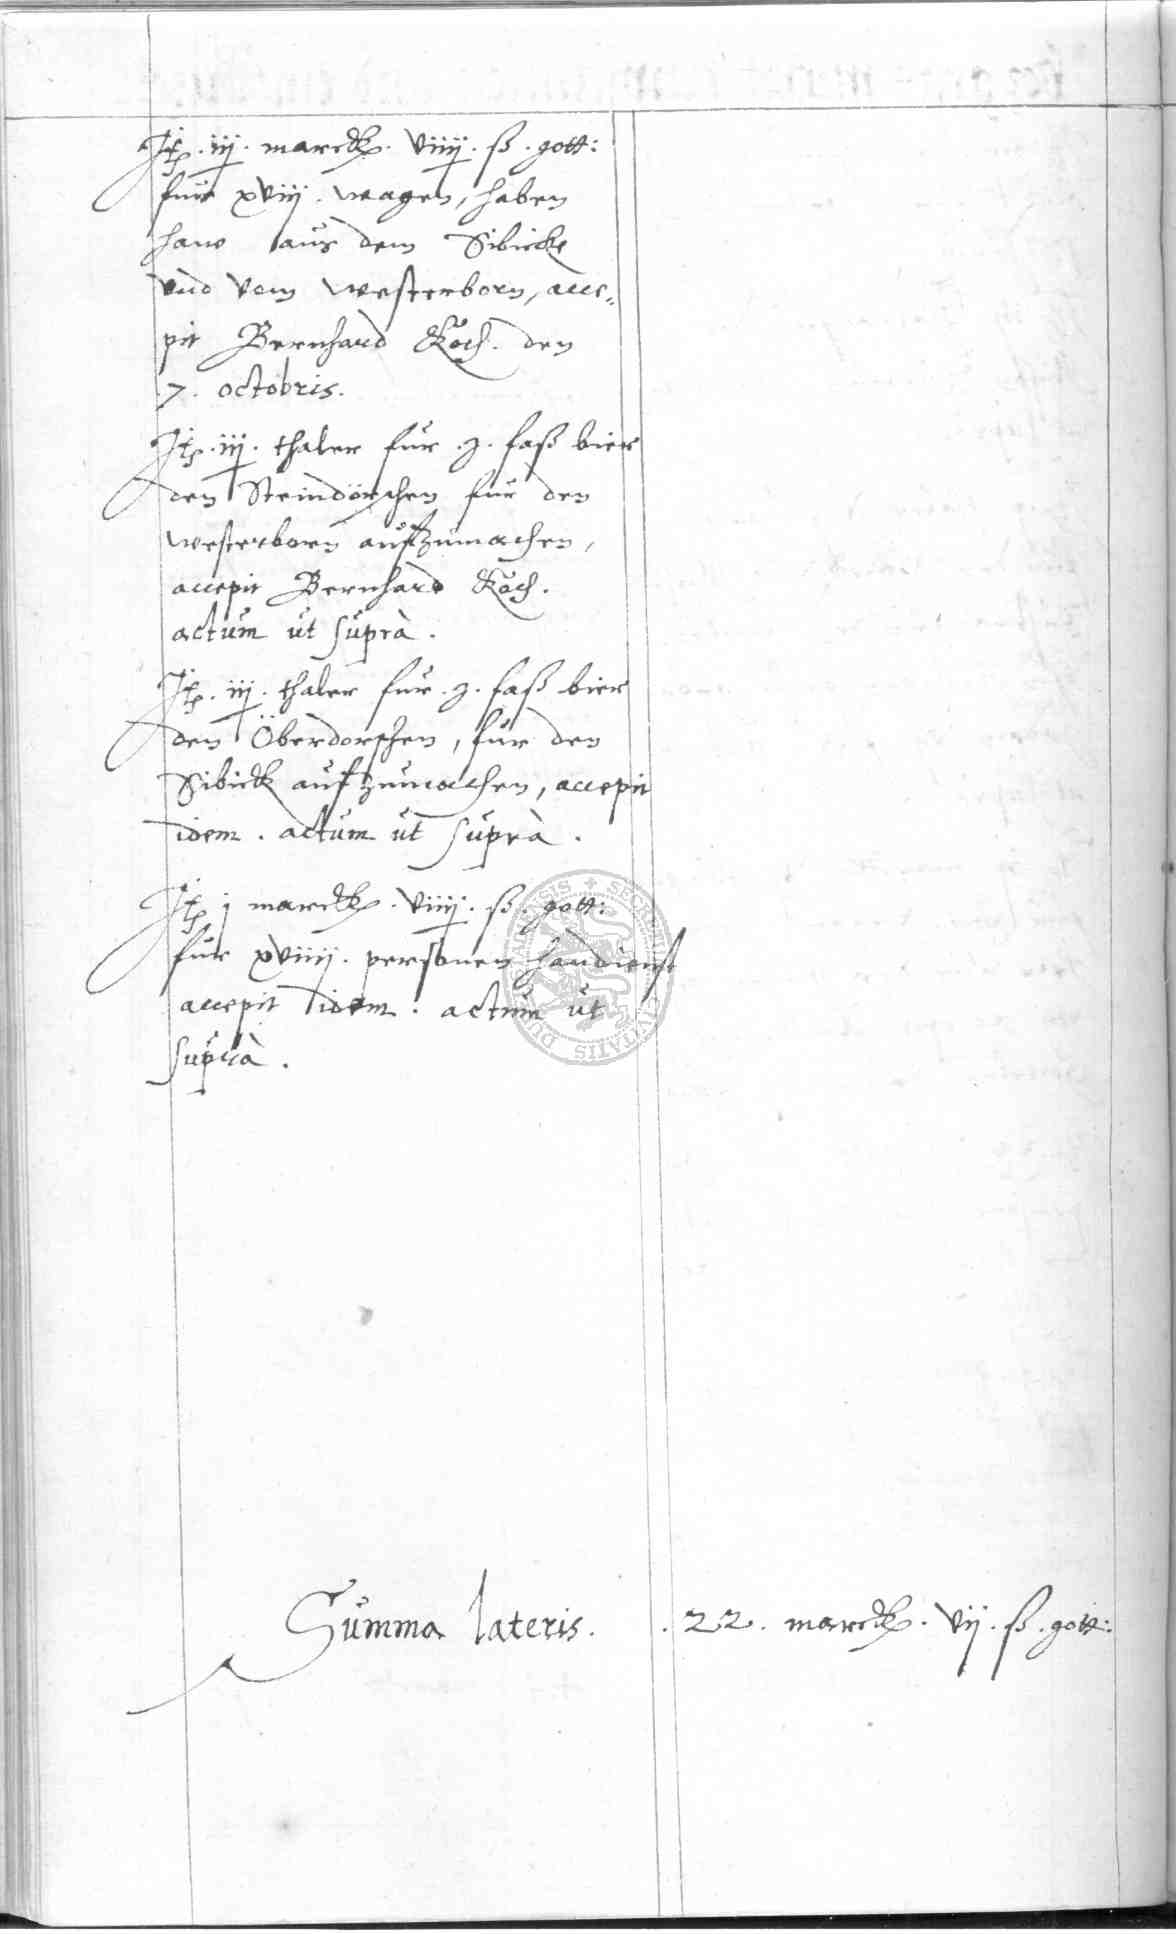 Itp. iij. marckk. viiij. ß. gott:
für xviij. wagen, haben
haw aus dem Sibicke
vnd vom Westerborn, acce„
pit Bernhard Koch. den
.7. octobris.
Itp. iij. thaler für .2. faß bier
den Steindörschen für den
Westerborn auffzumachen,
accepit Bernhard Koch.
actum ut suprà.
Itp. iij. thaler für .2. faß bier
den Öberdorschen, für den
Sibick auffzumachen, accepit
idem. actum ut suprà.
Itp j marckk. viiij. ß. gott:
für xviiij. personen handienst
accepit idem. actum ut
suprà.
Summa lateris. .22. marckk. vij. ß. gott: